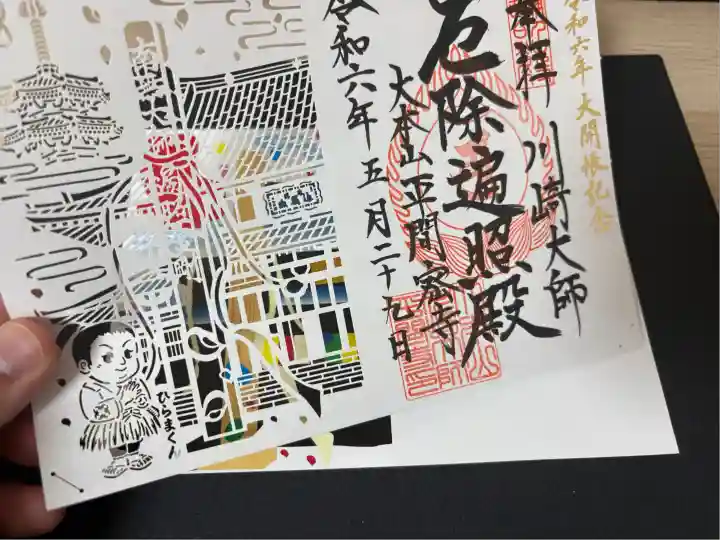 令和六年大開帳記念
奉拝 川崎大師
厄除遍照殿
大本山平間寺
令和六年五月二十九日
ひらまくん